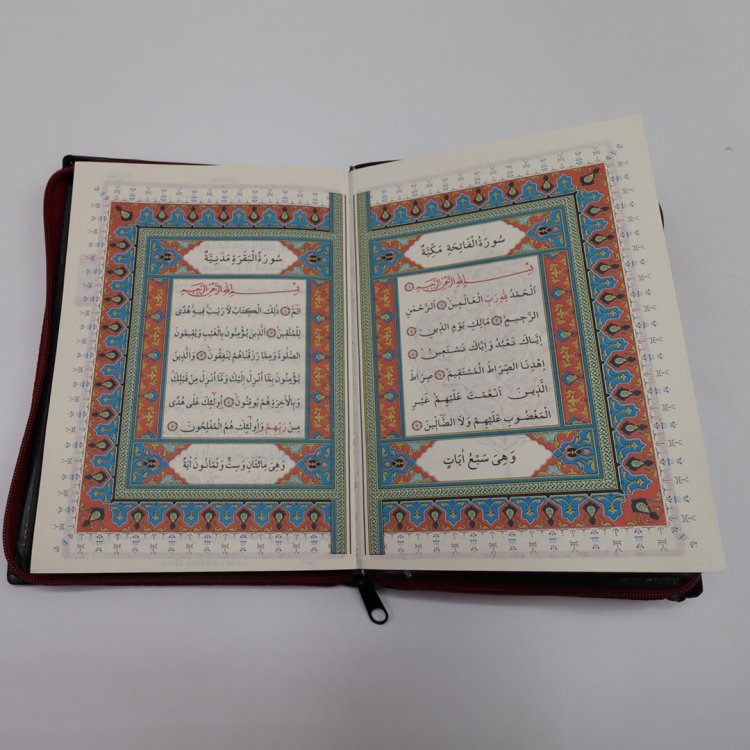 سُورَةُ الْفَاتِحَةِ مَكِّيَّةٌ
بِسْمِ اللهِ الرَّحْمٰنِ الرَّحِيمِ
اَلْحَمْدُ لِلّٰهِ رَبِّ الْعَالَمِينَ اَلرَّحْمٰنِ
الرَّحِيمِ مَالِكِ يَوْمِ الدِّينِ
اِيَّاكَ نَعْبُدُ وَاِيَّاكَ نَسْتَعِينُ
اِهْدِنَا الصِّرَاطَ الْمُسْتَقِيمَ صِرَاطَ
الَّذِينَ اَنْعَمْتَ عَلَيْهِمْ غَيْرِ
الْمَغْضُوبِ عَلَيْهِمْ وَلَا الضَّالِّينَ
وَهِيَ سَبْعُ اٰيَاتٍ
سُورَةُ الْبَقَرَةِ مَدَنِيَّةٌ
بِسْمِ اللهِ الرَّحْمٰنِ الرَّحِيمِ
الٓمٓ ذٰلِكَ الْكِتَابُ لَا رَيْبَ فِيهِ هُدًى
لِلْمُتَّقِينَ اَلَّذِينَ يُؤْمِنُونَ بِالْغَيْبِ وَيُقِيمُونَ
الصَّلٰوةَ وَمِمَّا رَزَقْنَاهُمْ يُنْفِقُونَ وَالَّذِينَ
يُؤْمِنُونَ بِمَٓا اُنْزِلَ اِلَيْكَ وَمَٓا اُنْزِلَ مِنْ قَبْلِكَ
وَبِالْاٰخِرَةِ هُمْ يُوقِنُونَ اُولٰٓئِكَ عَلٰى هُدًى
مِنْ رَبِّهِمْ وَاُولٰٓئِكَ هُمُ الْمُفْلِحُونَ
وَهِيَ مِائَتَانِ وَسِتٌّ وَثَمَانُونَ اٰيَةً